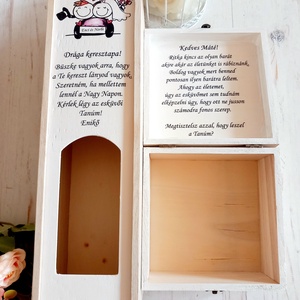 Enci & Norbi
Drága keresztapa!
Büszke vagyok arra, hogy
a Te kereszt lányod vagyok,
Szeretném, ha mellettem
lennél a Nagy Napon.
Kérlek légy az esküvői
Tanúm!
Enikő
Kedves Máté!
Ritka kincs az olyan barát
akire akár az életünket is rábíznánk,
Boldog vagyok mert benned
pontosan ilyen barátra leltem.
Ahogy az életemet,
úgy az esküvőmet sem tudnám
elképzelni úgy, hogy ott ne jusson
számodra fontos szerep.
Megtisztelsz azzal, hogy leszel
a Tanúm?